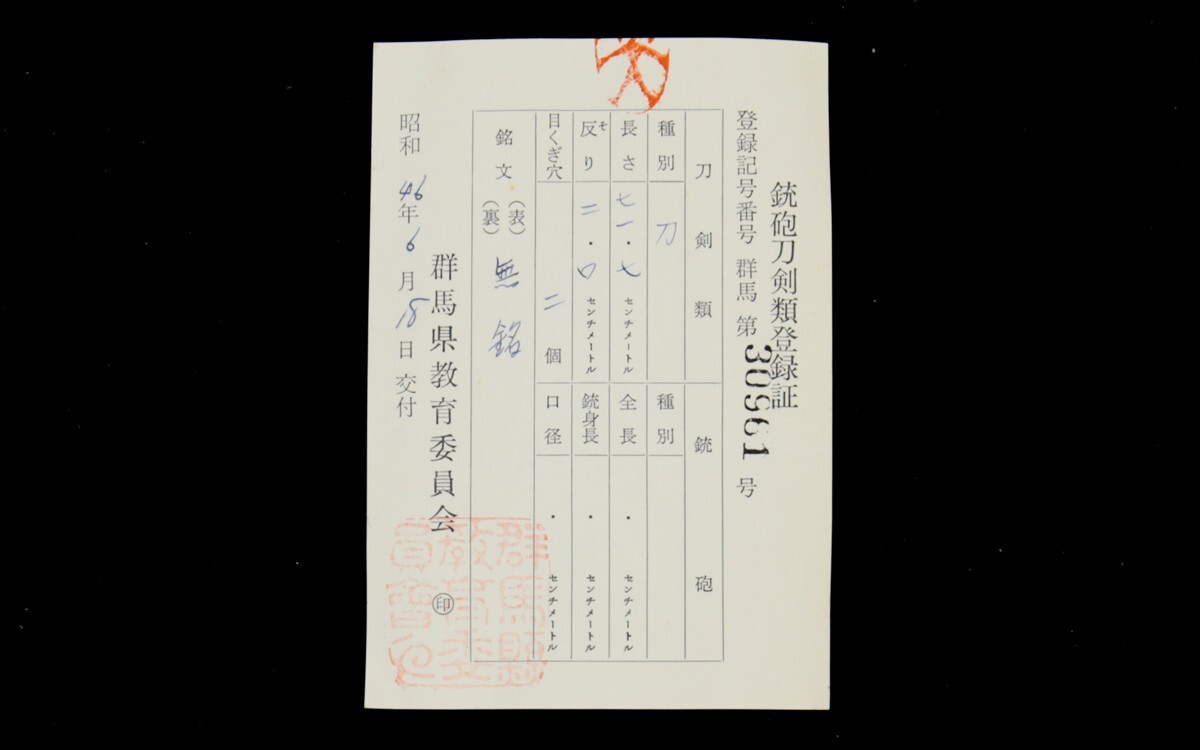 銃砲刀剣類登録証
登録記号番号 群馬 第 30961 号
刀剣類
種別 刀
長さ 七一・七 センチメートル
反り ソ 二・〇 センチメートル
目くぎ穴 二 個
銃砲
種別
全長 ・ センチメートル
銃身長 ・ センチメートル
口径 ・ センチメートル
銘文 (表) (裏) 無銘
群馬県教育委員会 印
昭和 46 年 6 月 18 日 交付
群馬縣
教育委
員會印